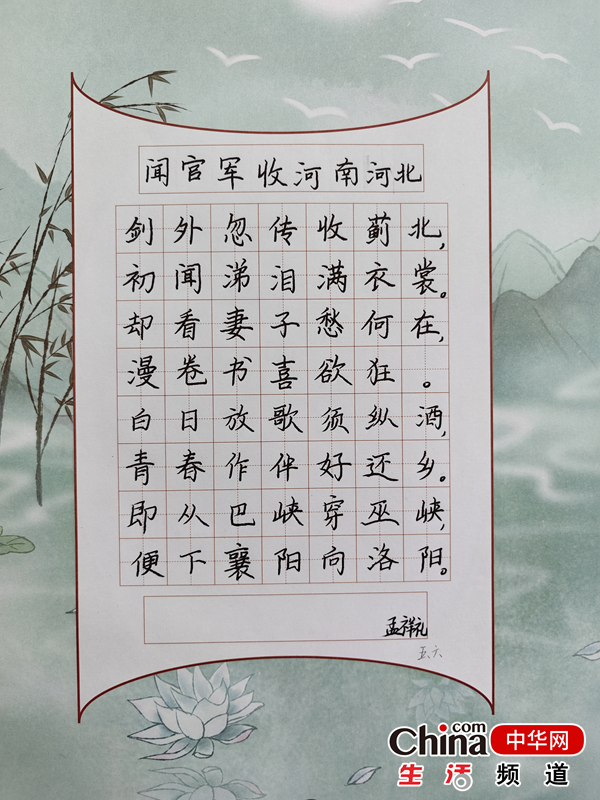 闻官军收河南河北
剑外忽传收蓟北,
初闻涕泪满衣裳。
却看妻子愁何在,
漫卷书喜欲狂。
白日放歌须纵酒,
青春作伴好还乡。
即从巴峡穿巫峡,
便下襄阳向洛阳。
孟祥礼
五、六
China.com 中华网
生活频道